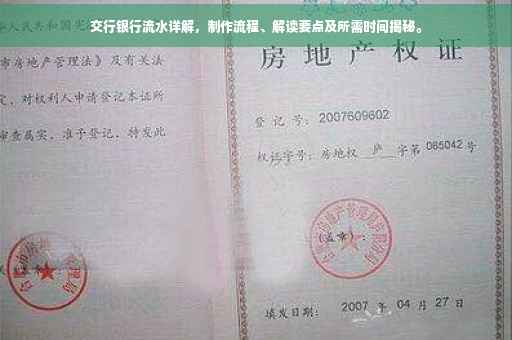 交行银行流水详解，制作流程、解读要点及所需时间揭秘。
人民共和国宪
市房地产管理法》及有关法
定，对权利人申请登记本证所
审查属实，准予登记，特发此
房地产权证
登记号：2007609602
权证字号：房地权 庐 字第 085042 号
(盖章)：
填发日期：2007 年 04 月 27 日